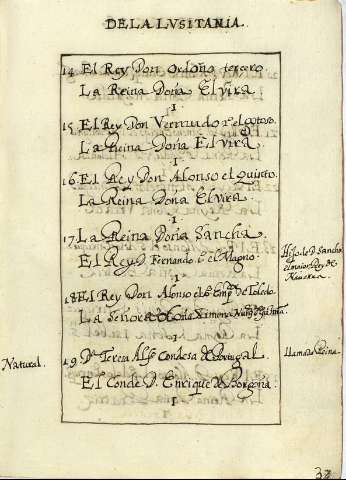 DE LA LVSITANIA.
14 El Rey Don Ordoño tercero.
La Reina Doña Elvira.
I
15 El Rey Don Vermudo 2º el gotoso.
La Reina Doña Elvira.
I
16 El Rey Don Alonso el quinto.
La Reina Dona Elvira.
I
17 La Reina Doña Sancha.
El Rey D. Fernando 1º el Magno.
Hijo de D. Sancho
el maior Rey de
Navarra
I
18 El Rey Don Alonso el 6º Empor. de Toledo.
La Señora Doña Ximena
I
Natural.
19 Dª Teresa Alfº Condesa de Portugal.
llamada Reina.
El Conde D. Enrique de Borgoña
I